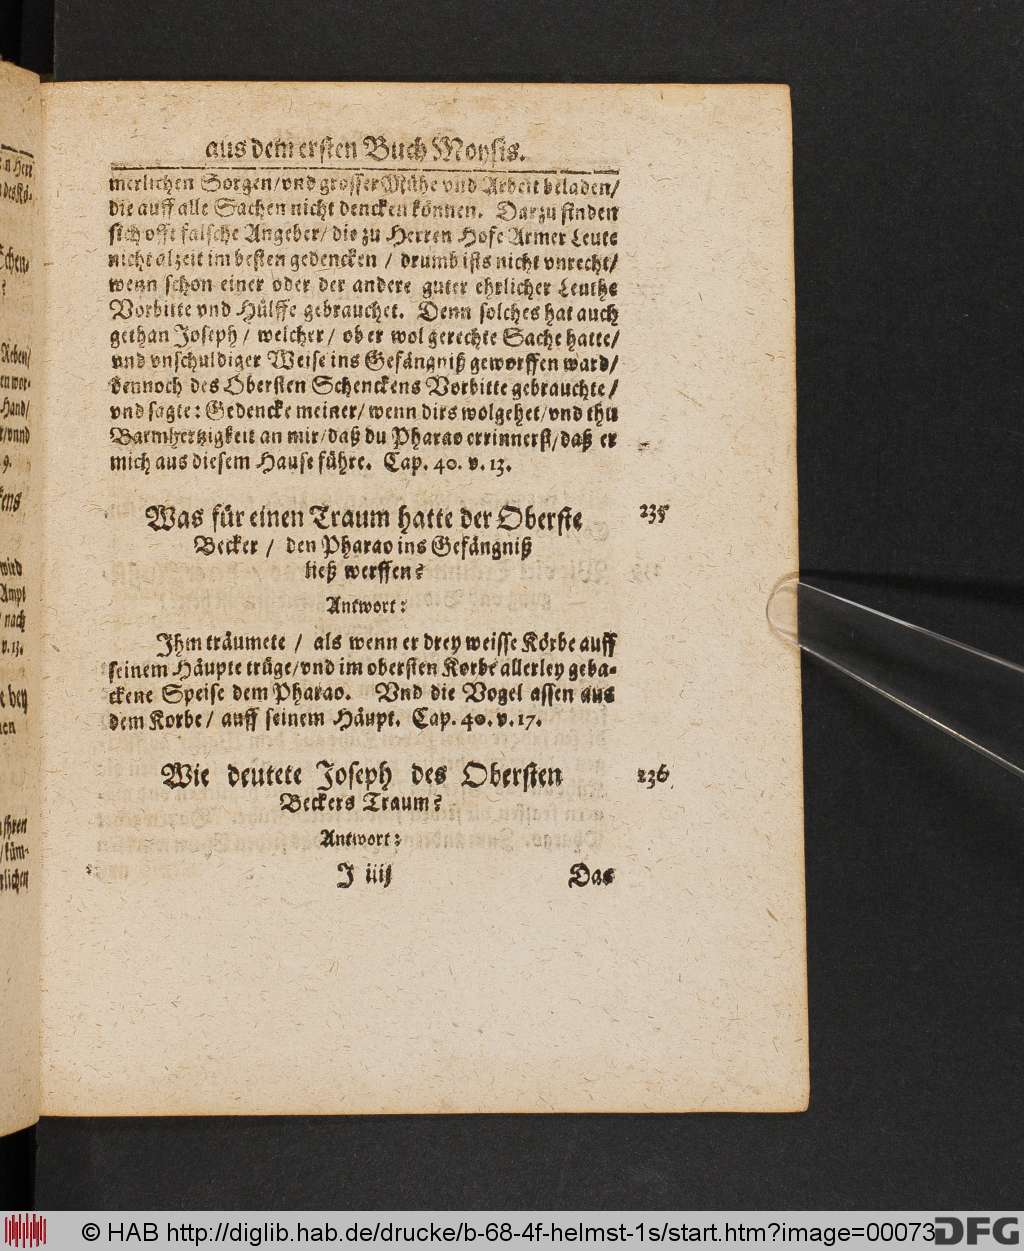 aus dem ersten Buch Moysis.
merlichen Sorgen/vnd grosser Mühe vnd Arbeit beladen/
die auff alle Sachen nicht dencken können. Darzu finden
sich offt falsche Angeber/ die zu Herren Hofe Armer Leute
nicht alzeit im besten gedencken / drumb ists nicht vnrecht/
wenn schon einer oder der andere guter ehrlicher Leuthe
Vorbitte vnd Hülffe gebrauchet. Denn solches hat auch
gethan Joseph / welcher / ob er wol gerechte Sache hatte/
vnd vnschuldiger Weise ins Gefängniß geworffen ward/
dennoch des Obersten Schenckens Vorbitte gebrauchte/
vnd sagte: Gedencke meiner/ wenn dirs wolgehet/vnd thu
Barmhertzigkeit an mir/daß du Pharao errinnerst/daß er
mich aus diesem Hause führe. Cap. 40. v. 13.
Was für einen Traum hatte der Oberste
235
Becker / den Pharao ins Gefängniß
ließ werffen?
Antwort:
Ihm träumete / als wenn er drey weisse Körbe auff
seinem Häupte trüge/vnd im obersten Korbe allerley geba-
ckene Speise dem Pharao. Vnd die Vogel assen aus
dem Korbe/ auff seinem Häupt. Cap. 40. v. 17.
Wie deutete Joseph des Obersten
236
Beckers Traum?
Antwort:
J iiij
Das
© HAB http://diglib.hab.de/drucke/b-68-4f-helmst-1s/start.htm?image=00073
DFG